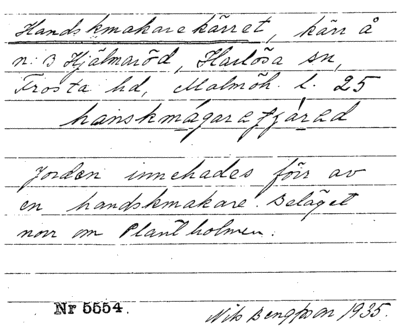 Handskmakarekärret, kärr å
n:3 Hjälmaröd, Harlösa sn,
Frosta hd, Malmöh. l. 25
hanskmágaratjárad
Jorden innehades förr av
en handskmakare. Beläget
norr om Plantholmen.
Nr 5554. Nils Bengtsson 1935.